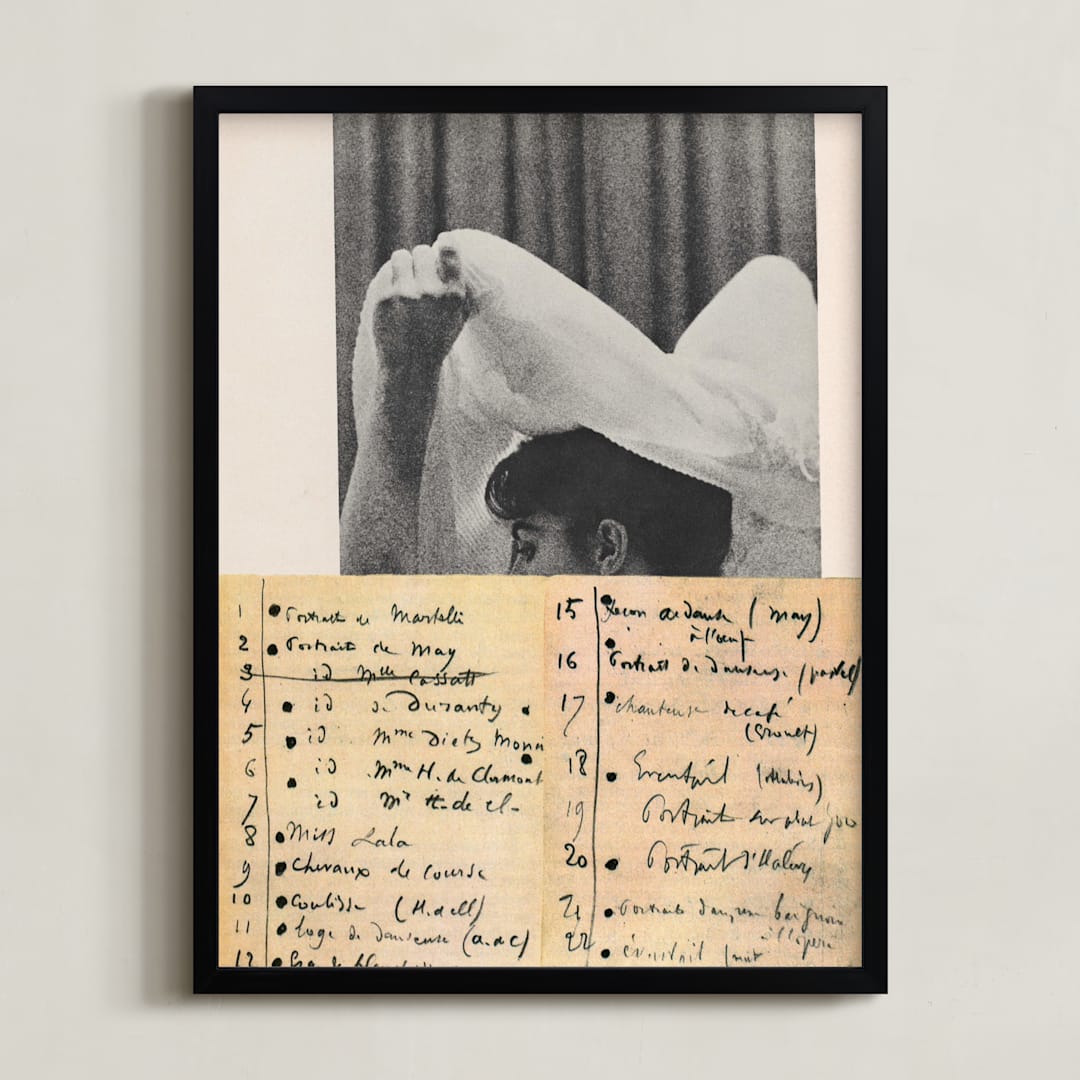 1 Portrait de Martelli
2 Portrait de May
3 id Mlle Cassatt
4 id de Duranty
5 id Mme Dietz Monin
6 id Mme H. de Clermont
7 id Mr H. de Cl-
8 Miss Lala
9 Chevaux de course
10 Coulisse (H. de Cll)
11 Loge de danseuse (a. de C)
12
15 Leçon de danse (May)
à l'oeuf
16 Portrait de danseuse (pastel)
17 chanteuse de café
18 Eventail
19 Portrait sur
20 Portrait d'Halévy
21 Portrait dans une baignoire
à l'opéra
22 éventail